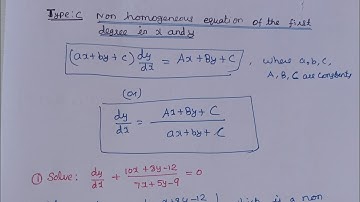 Type:C Non homogeneous equation of the first
degree in x and y
(ax+by+c) dy/dx = Ax+By+C, where a,b,c,
A,B,C are constants
(or)
dy/dx = Ax+By+C / ax+by+C
① Solve: dy/dx + 10x+8y-12 / 7x+5y-9 = 0
which is a non